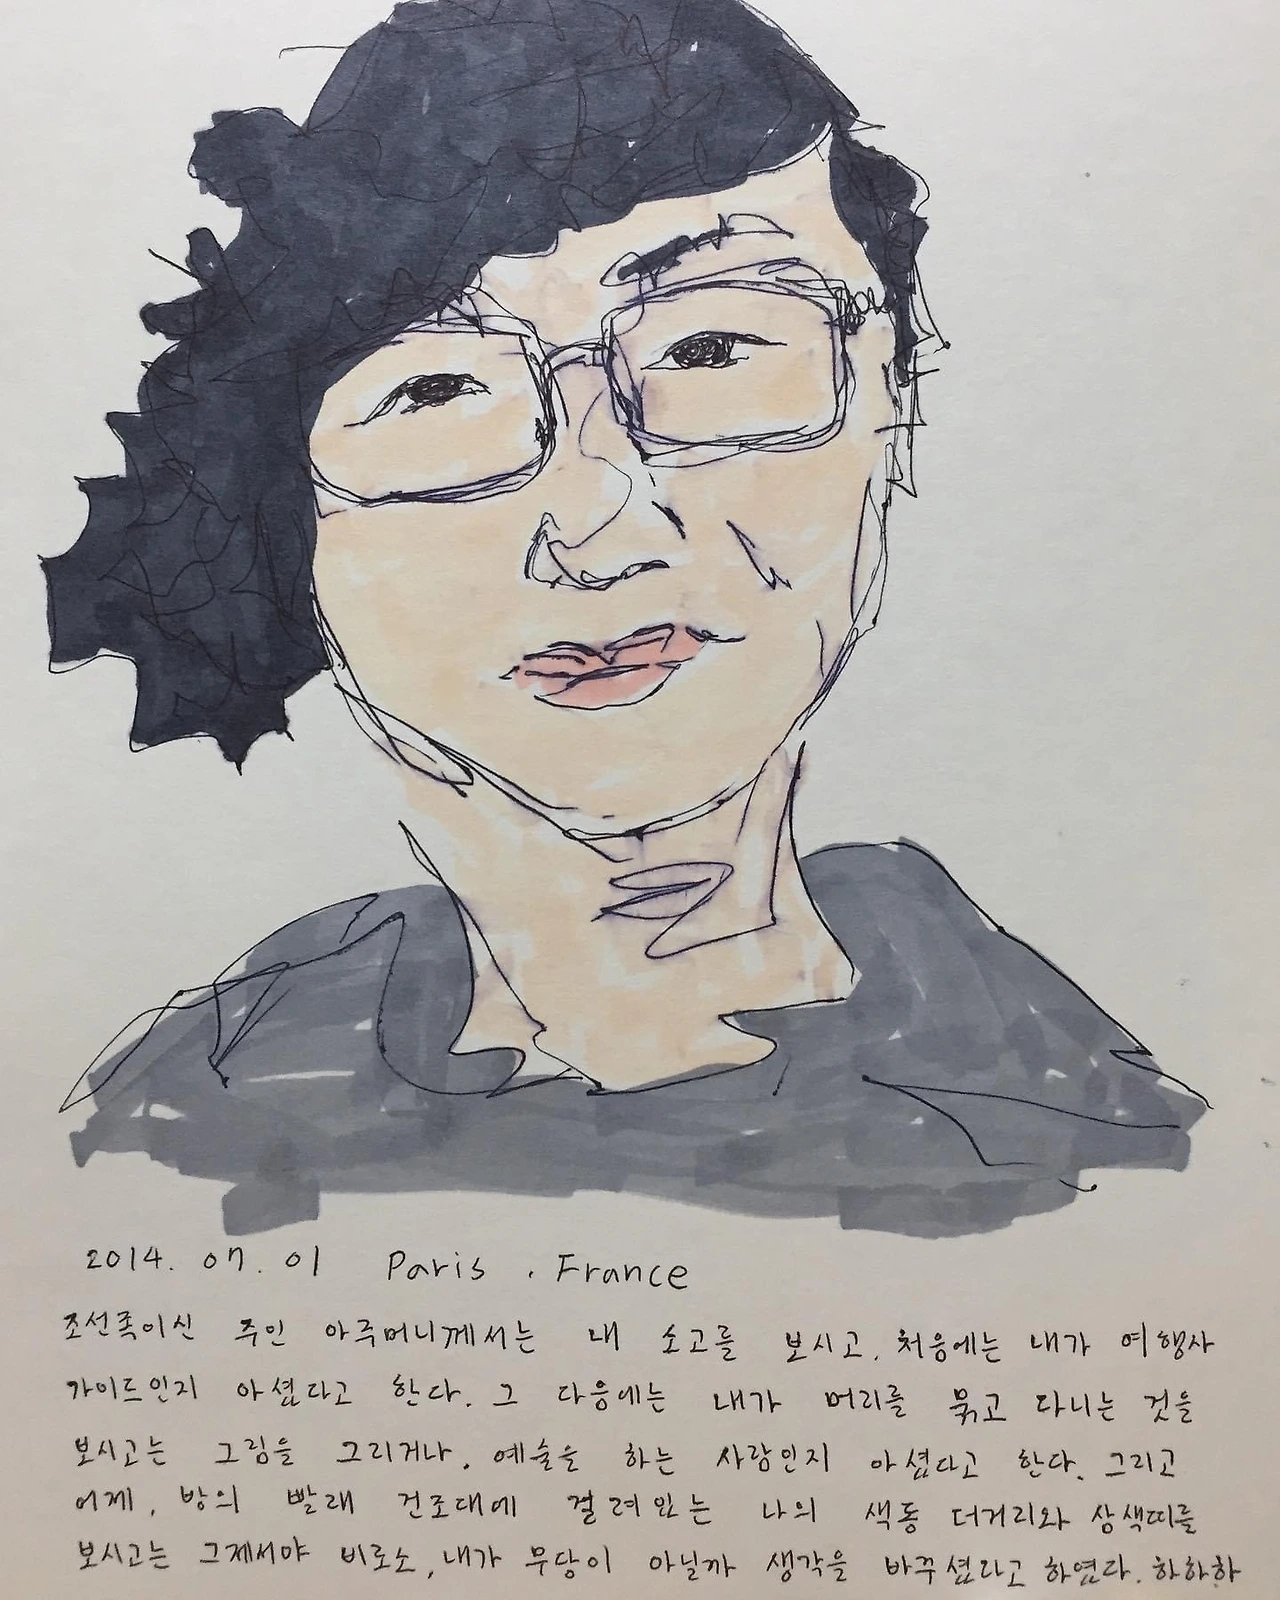 2014. 07. 01 Paris . France
조선족이신 주인 아주머니께서는 내 소고를 보시고, 처음에는 내가 여행사
가이드인지 아셨다고 한다. 그 다음에는 내가 머리를 묶고 다니는 것을
보시고는 그림을 그리거나, 예술을 하는 사람인지 아셨다고 한다. 그리고
어제, 방의 빨래 건조대에 걸려있는 나의 색동 더거리와 삼색띠를
보시고는 그제서야 비로소, 내가 무당이 아닐까 생각을 바꾸셨다고 하였다. 하하하